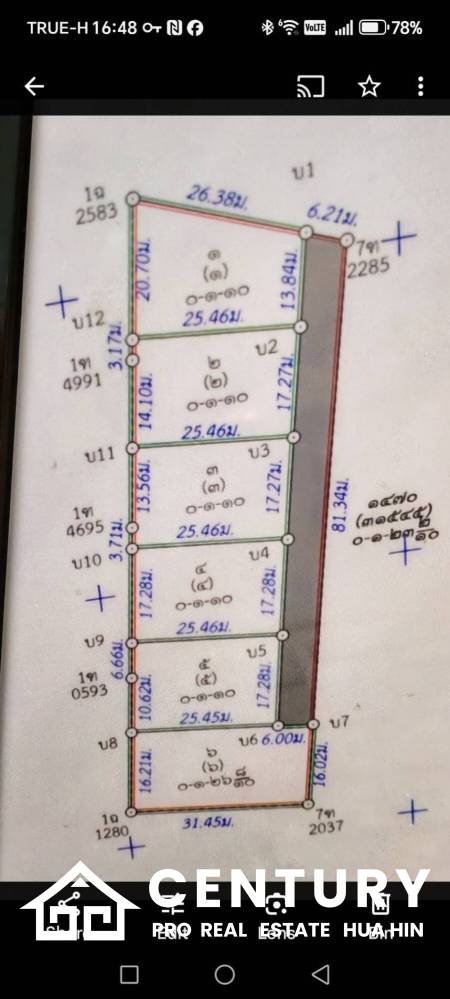 TRUE-H 16:48
VoLTE 78%
บ1
1ฉ
2583
26.38ม.
6.21ม.
7ท
2285
20.70ม.
๑
(๑)
๐-๑-๑๐
13.84ม.
25.46ม.
บ12
3.17ม.
บ2
1ท
4991
๒
(๒)
๐-๑-๑๐
14.10ม.
17.27ม.
25.46ม.
บ11
บ3
13.56ม.
๓
(๓)
๐-๑-๑๐
17.27ม.
81.34ม.
๑๔๗๐
1ท
4695
3.71ม.
25.46ม.
บ10
บ4
17.28ม.
๔
(๔)
๐-๑-๑๐
17.28ม.
25.46ม.
บ9
บ5
6.66ม.
1ท
0593
๕
(๕)
๐-๑-๑๐
10.62ม.
17.28ม.
25.45ม.
บ8
บ6
6.00ม.
บ7
16.21ม.
๖
(๖)
16.02ม.
1ฉ
1280
31.45ม.
7ท
2037
CENTURY
PRO REAL ESTATE HUA HIN
Edit
Lens
Bin